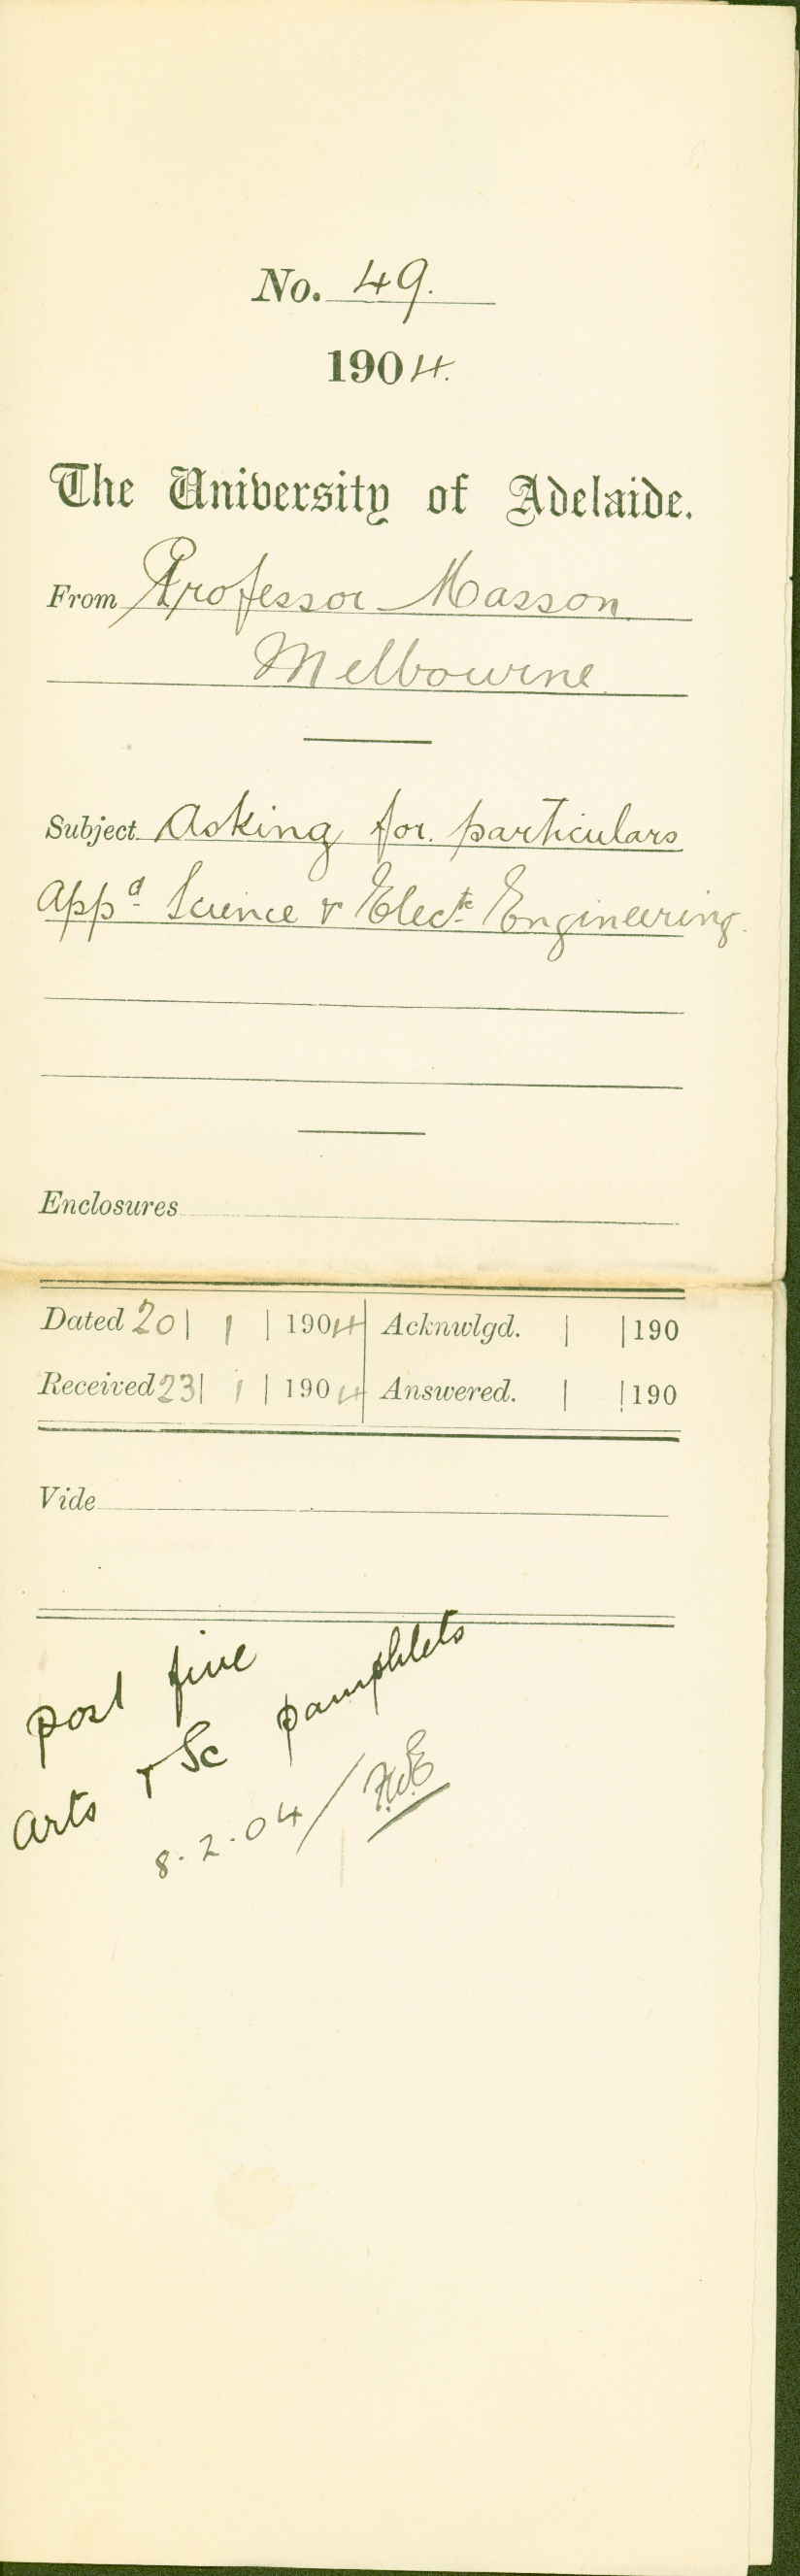 No. 49.
1904.
The University of Adelaide.
From Professor Masson
Melbourne
Subject Asking for particulars
appd Science & Elect Engineering.
Enclosures
Dated 20| 1 |1904 Acknwlgd. | |190
Received 23| 1 |1904 Answered. | |190
Vide
post five
arts & Sc pamphlets
8.2.04/